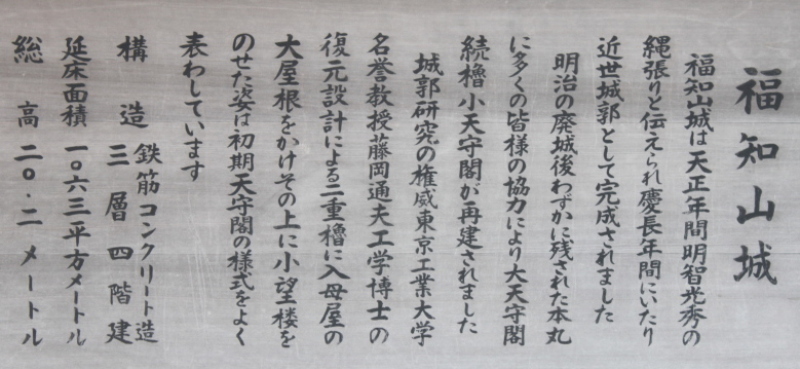 福知山城
福知山城は天正年間明智光秀の
縄張りと伝えられ慶長年間にいたり
近世城郭として完成されました
明治の廃城後わずかに残された本丸
に多くの皆様の協力により大天守閣
続櫓小天守閣が再建されました
城郭研究の権威東京工業大学
名誉教授藤岡通夫工学博士の
復元設計による二重櫓に入母屋の
大屋根をかけその上に小望楼を
のせた姿は初期天守閣の様式をよく
表わしています
構造 鉄筋コンクリート造
三層四階建
延床面積 一〇六三平方メートル
総高 二〇・二メートル